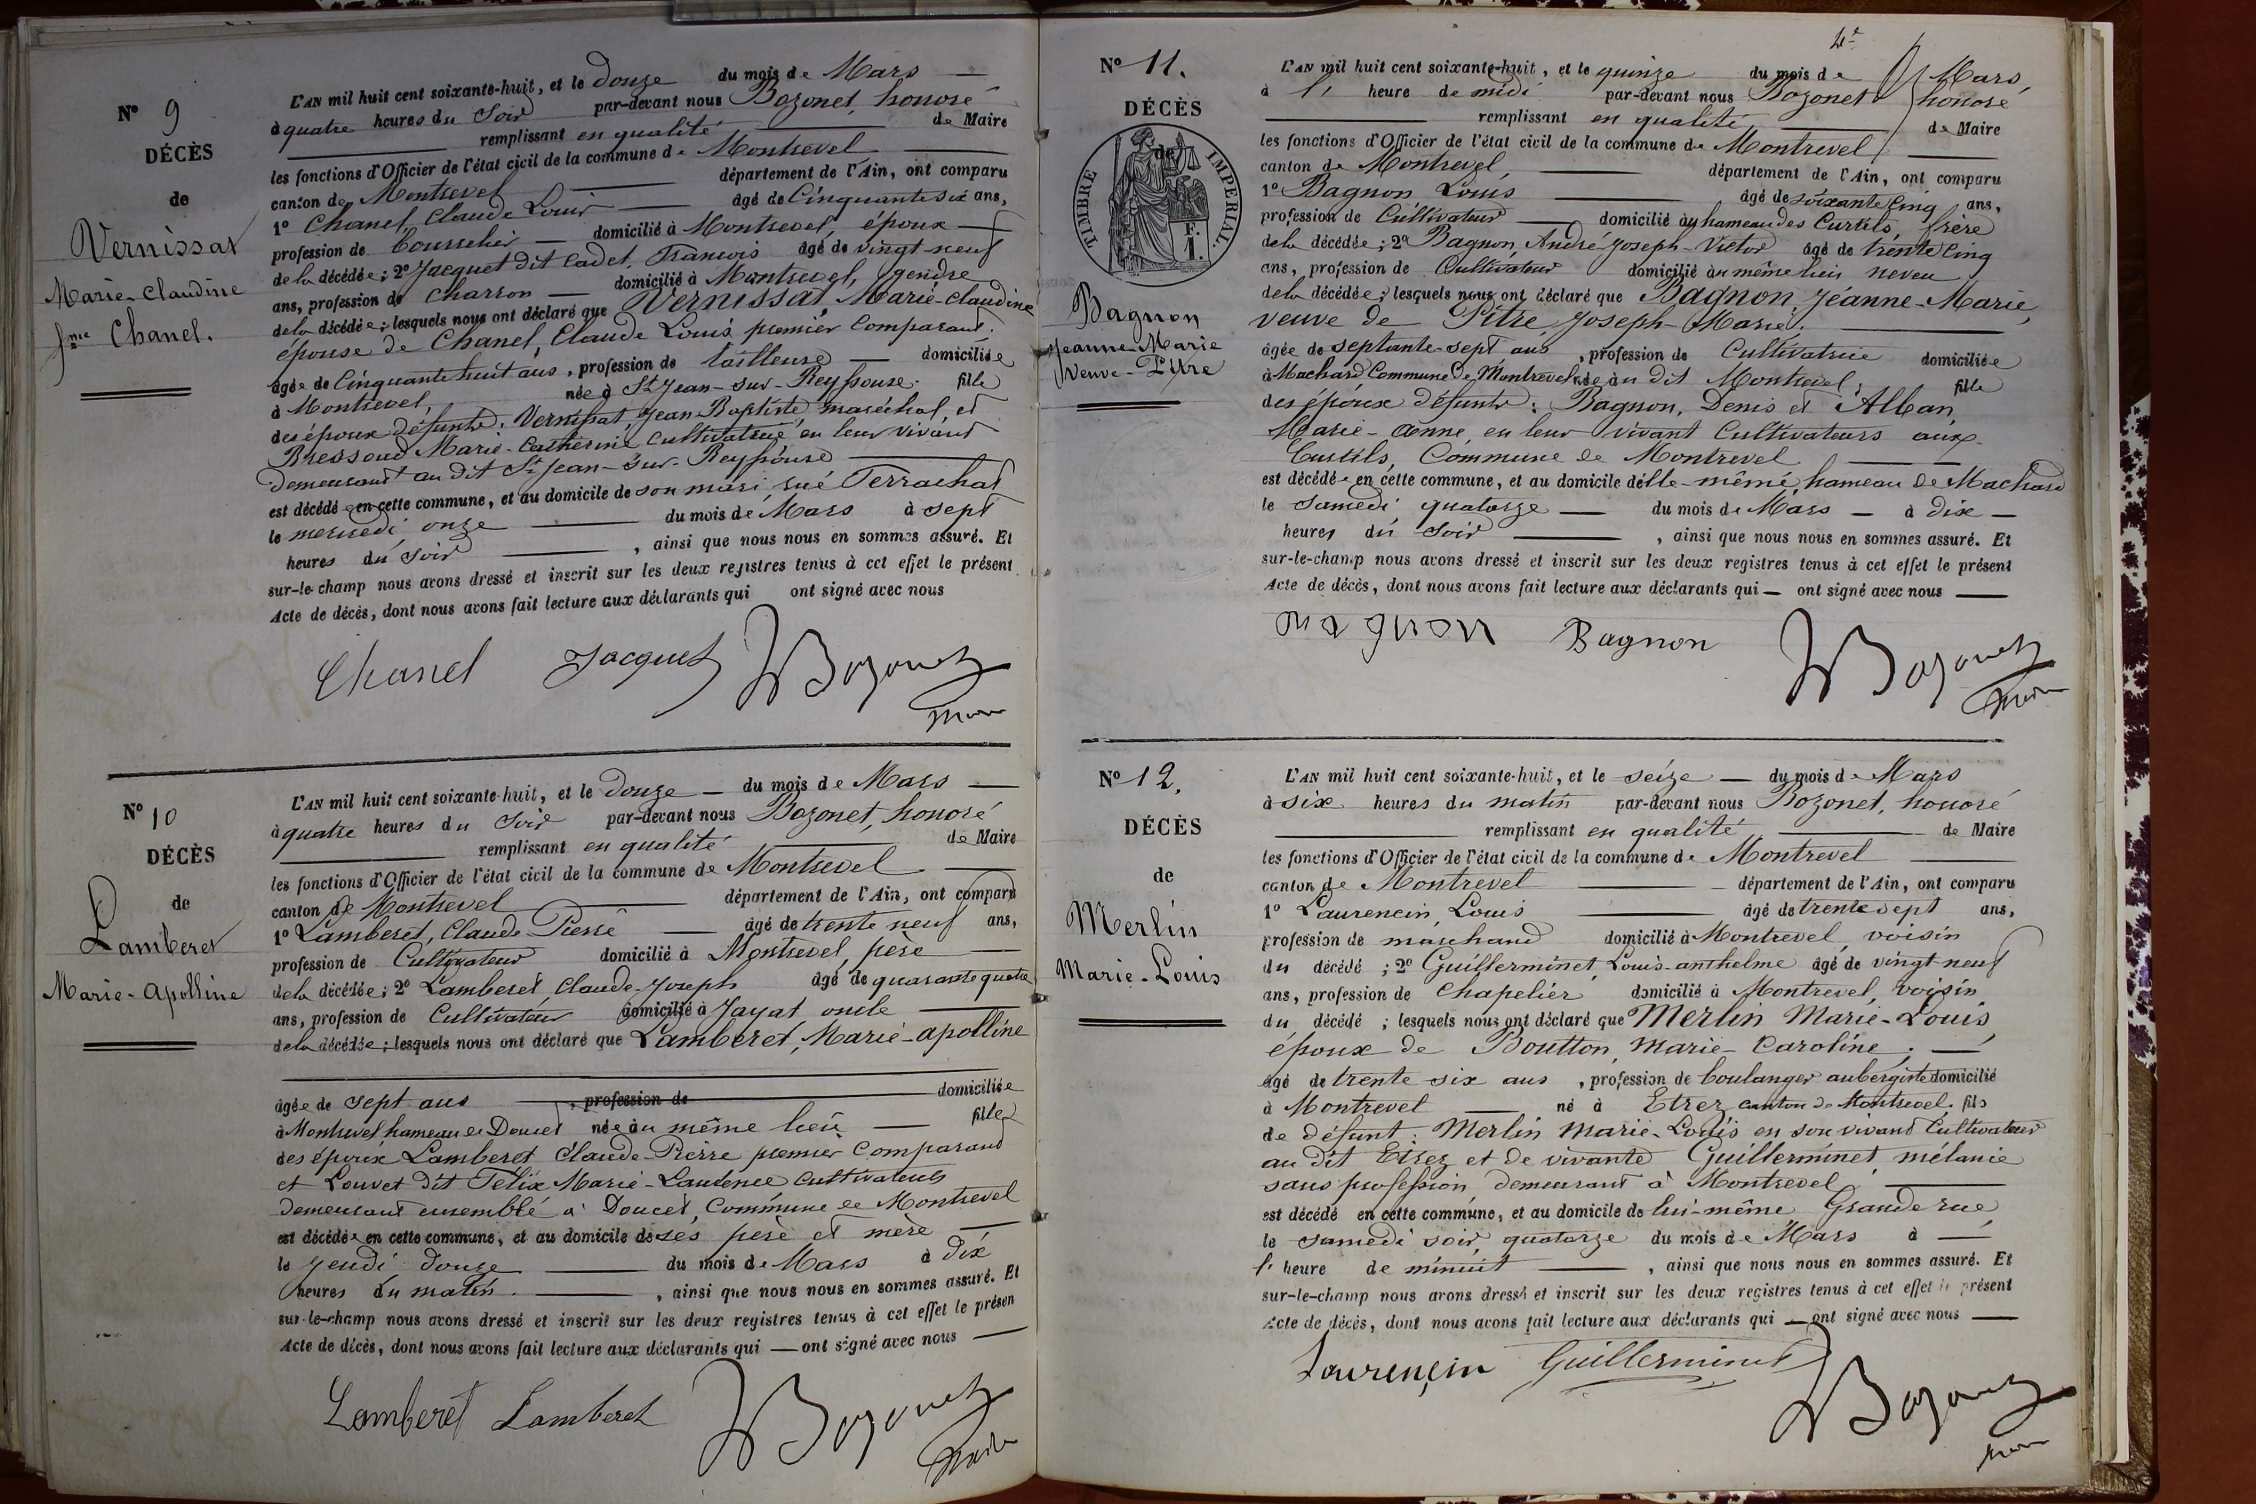 N° 9
DÉCÈS
de
Vernissat
Marie-Claudine
fme Chanel.
L'AN mil huit cent soixante-huit, et le douze du mois de Mars
à quatre heures du Soir par-devant nous Bozonet, honoré
remplissant en qualité de Maire
les fonctions d'Officier de l'état civil de la commune de Montrevel
canton de Montrevel département de l'Ain, ont comparu
1° Chanel, Claude Louis âgé de Cinquante six ans,
profession de bourrelier domicilié à Montrevel, époux
de la décédée; 2° Jacquet dit Cadet, François âgé de vingt-neuf
ans, profession de charron domicilié à Montrevel, gendre
de la décédée; lesquels nous ont déclaré que Vernissat, Marie-Claudine
épouse de Chanel, Claude Louis, premier comparant.
âgée de Cinquante huit ans, profession de tailleuse domiciliée
à Montrevel, née à St Jean-sur-Reyssouze. fille
des époux défunts: Vernissat, Jean Baptiste maréchal, et
Bressoud Marie-Catherine cultivatrice en leur vivant
demeurant au dit St Jean-sur-Reyssouze
est décédée en cette commune, et au domicile de son mari, rue Ferrachat
le mercredi onze du mois de Mars à sept
heures du soir, ainsi que nous nous en sommes assuré. Et
sur-le-champ nous avons dressé et inscrit sur les deux registres tenus à cet effet le présent
Acte de décès, dont nous avons fait lecture aux déclarants qui ont signé avec nous
Chanel Jacquet Bozonet
maire
N° 10
DÉCÈS
de
Lamberet
Marie-Apolline
L'AN mil huit cent soixante-huit, et le douze du mois de Mars
à quatre heures du Soir par-devant nous Bozonet, honoré
remplissant en qualité de Maire
les fonctions d'Officier de l'état civil de la commune de Montrevel
canton de Montrevel département de l'Ain, ont comparu
1° Lamberet, Claude-Pierre âgé de trente neuf ans,
profession de Cultivateur domicilié à Montrevel, père
de la décédée; 2° Lamberet, Claude-Joseph âgé de quarante quatre
ans, profession de Cultivateur domicilié à Jayat oncle
de la décédée; lesquels nous ont déclaré que Lamberet, Marie-apolline
âgée de sept ans, profession de domiciliée
à Montrevel hameau de Doucet née au même lieu fille
des époux Lamberet Claude-Pierre premier Comparant
et Louvet dit Félix Marie-Laurence cultivateurs
demeurant ensemble à Doucet, Commune de Montrevel
est décédée en cette commune, et au domicile de ses père et mère
le Jeudi douze du mois de Mars à dix
heures du matin, ainsi que nous nous en sommes assuré. Et
sur-le-champ nous avons dressé et inscrit sur les deux registres tenus à cet effet le présen
Acte de décès, dont nous avons fait lecture aux déclarants qui ont signé avec nous
Lamberet Lamberet Bozonet
maire
N° 11.
DÉCÈS
de
TIMBRE IMPÉRIAL.
F. 1
Bagnon
Jeanne-Marie
Veuve-Pitre
L'AN mil huit cent soixante-huit, et le quinze du mois de Mars,
à l' heure de midi par-devant nous Bozonet honoré
remplissant en qualité de Maire
les fonctions d'Officier de l'état civil de la commune de Montrevel
canton de Montrevel, département de l'Ain, ont comparu
1° Bagnon Louis âgé de soixante Cinq ans,
profession de Cultivateur domicilié au hameau des Curtils, frère
de la décédée; 2° Bagnon, André-Joseph-Victor âgé de trente Cinq
ans, profession de Cultivateur domicilié au même lieu neveu
de la décédée; lesquels nous ont déclaré que Bagnon, Jeanne-Marie,
veuve de Pitre Joseph-Marie.
âgée de septante-sept ans, profession de Cultivatrice domiciliée
à Machard Commune de Montrevel née au dit Montrevel; fille
des époux défunts: Bagnon, Denis et Alban
Marie-Anne, en leur vivant Cultivateurs aux
Curtils, Commune de Montrevel
est décédée en cette commune, et au domicile d'elle-même, hameau de Machard
le Samedi quatorze du mois de Mars à dix
heures du Soir, ainsi que nous nous en sommes assuré. Et
sur-le-champ nous avons dressé et inscrit sur les deux registres tenus à cet effet le présent
Acte de décès, dont nous avons fait lecture aux déclarants qui ont signé avec nous
Bagnon Bozonet
N° 12.
DÉCÈS
de
Merlin
Marie-Louis
L'AN mil huit cent soixante-huit, et le seize du mois de Mars
à six heures du matin par-devant nous Bozonet, honoré
remplissant en qualité de Maire
les fonctions d'Officier de l'état civil de la commune de Montrevel
canton de Montrevel département de l'Ain, ont comparu
1° Laurencin, Louis âgé de trente sept ans,
profession de marchand domicilié à Montrevel, voisin
du décédé; 2° Guillerminet, Louis-anthelme âgé de vingt-neuf
ans, profession de Chapelier domicilié à Montrevel, voisin
du décédé; lesquels nous ont déclaré que Merlin Marie-Louis,
époux de Boutton, Marie-Caroline;
âgé de trente six ans, profession de boulanger aubergiste domicilié
à Montrevel né à Etrez canton de Montrevel, fils
de défunt: Merlin Marie-Louis en son vivant Cultivateur
au dit Etrez et de vivante Guillerminet mélanie
sans profession, demeurant à Montrevel
est décédé en cette commune, et au domicile de lui-même Grande rue,
le samedi soir quatorze du mois de Mars à
l' heure de minuit, ainsi que nous nous en sommes assuré. Et
sur-le-champ nous avons dressé et inscrit sur les deux registres tenus à cet effet le présent
Acte de décès, dont nous avons fait lecture aux déclarants qui ont signé avec nous
Laurençin Guillerminet Bozonet
maire